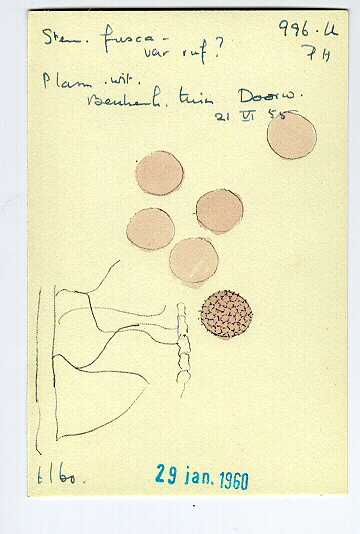 Stem. fusca -
var ruf?
996. U
PH
Plasm. wit.
Beukenh. tuin Doorw.
21 VI 55
t/60.
29 jan. 1960